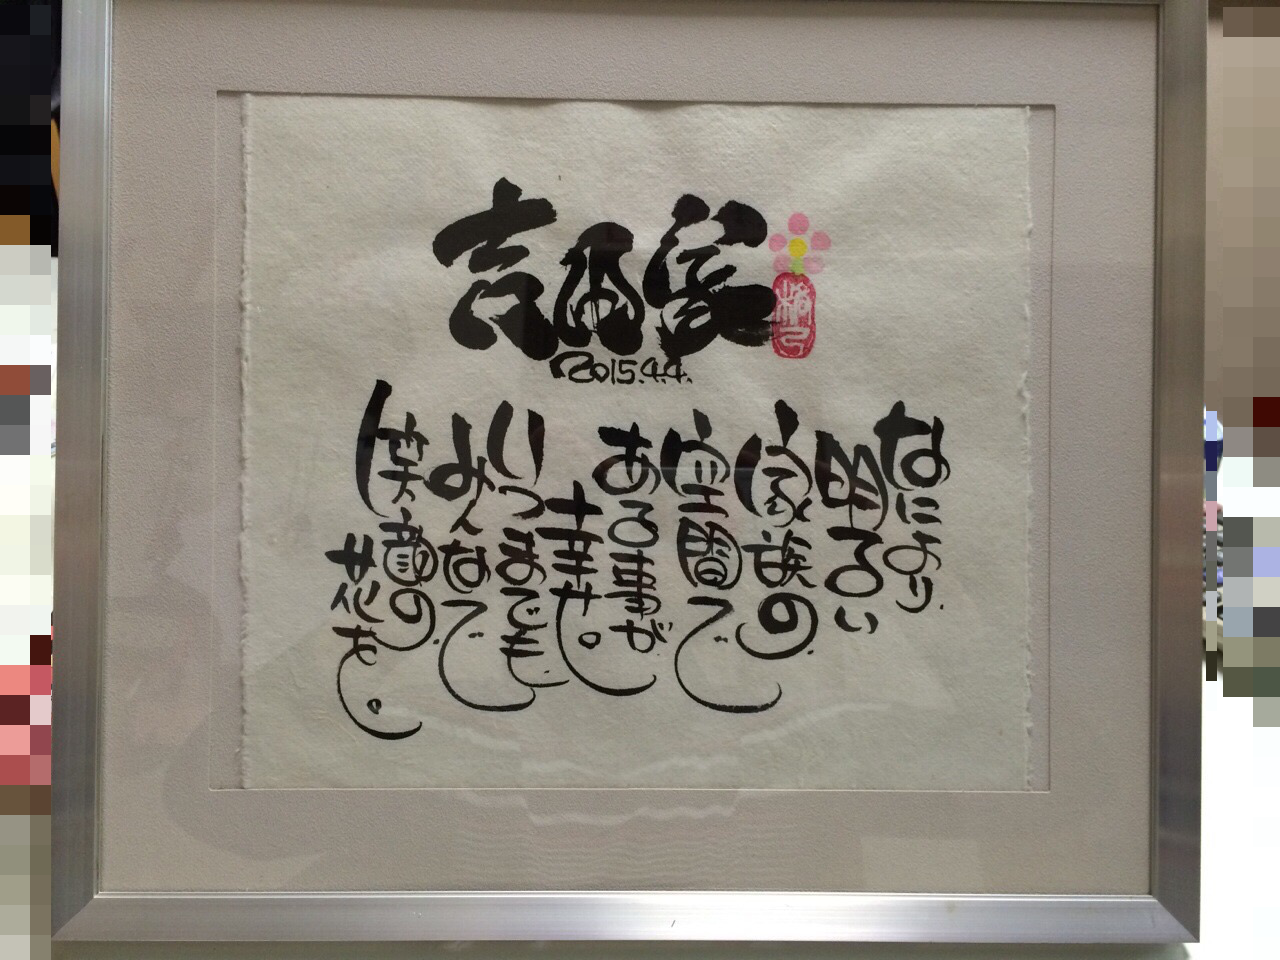 吉田家
2015.4.4.
なにより
明るい
家族の
空間で
ある事が
幸せ。
いつまでも
みんなで
笑顔の
花を。